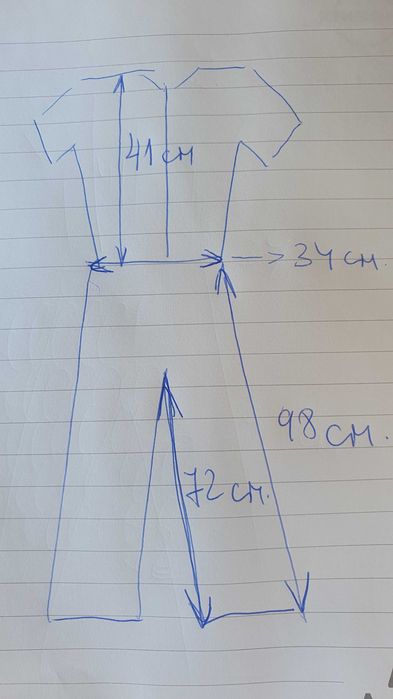 41 см
34 см.
98 см.
72 см.